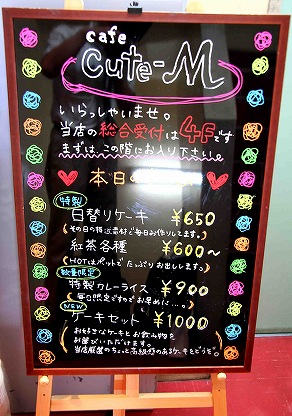 cafe
Cute-M
いらっしゃいませ。
当店の総合受付は4Fです
まずは、この階にお入り下さい。
本日の
特製
日替りケーキ ¥650
(その日の特選素材で毎日お作りしてます。)
紅茶各種 ¥600〜
(HOTはポットでたっぷりお出しします。)
数量限定
特製カレーライス ¥900
(毎日限定ですのでお早めに…。)
NEW
ケーキセット ¥1000
お好きなケーキとお飲み物を
お選びいただけます。
当店厳選のちょっと高級感のあるケーキをどうぞ。